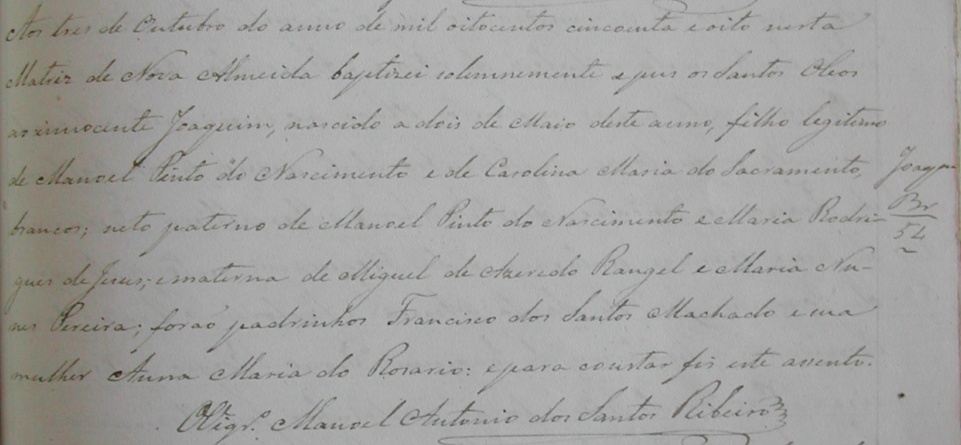 Aos tres de Outubro do anno de mil oitocentos cincoenta e oito nesta
Matriz de Nova Almeida baptizei solemnemente e pus os Santos Oleos
ao innocente Joaquim, nascido a dois de Maio deste anno, filho legitimo
de Manoel Pinto do Nascimento e de Carolina Maria do Sacramento,
brancos; neto paterno de Manoel Pinto do Nascimento e Maria Rodri-
gues de Jesus; e materna de Miguel de Azeredo Rangel e Maria Nu-
nes Pereira; forão padrinhos Francisco dos Santos Machado e sua
mulher Anna Maria do Rosario: e para constar fis este assento.
O Vigr.º Manoel Antonio dos Santos Ribeiro
Joaqm
Br
54